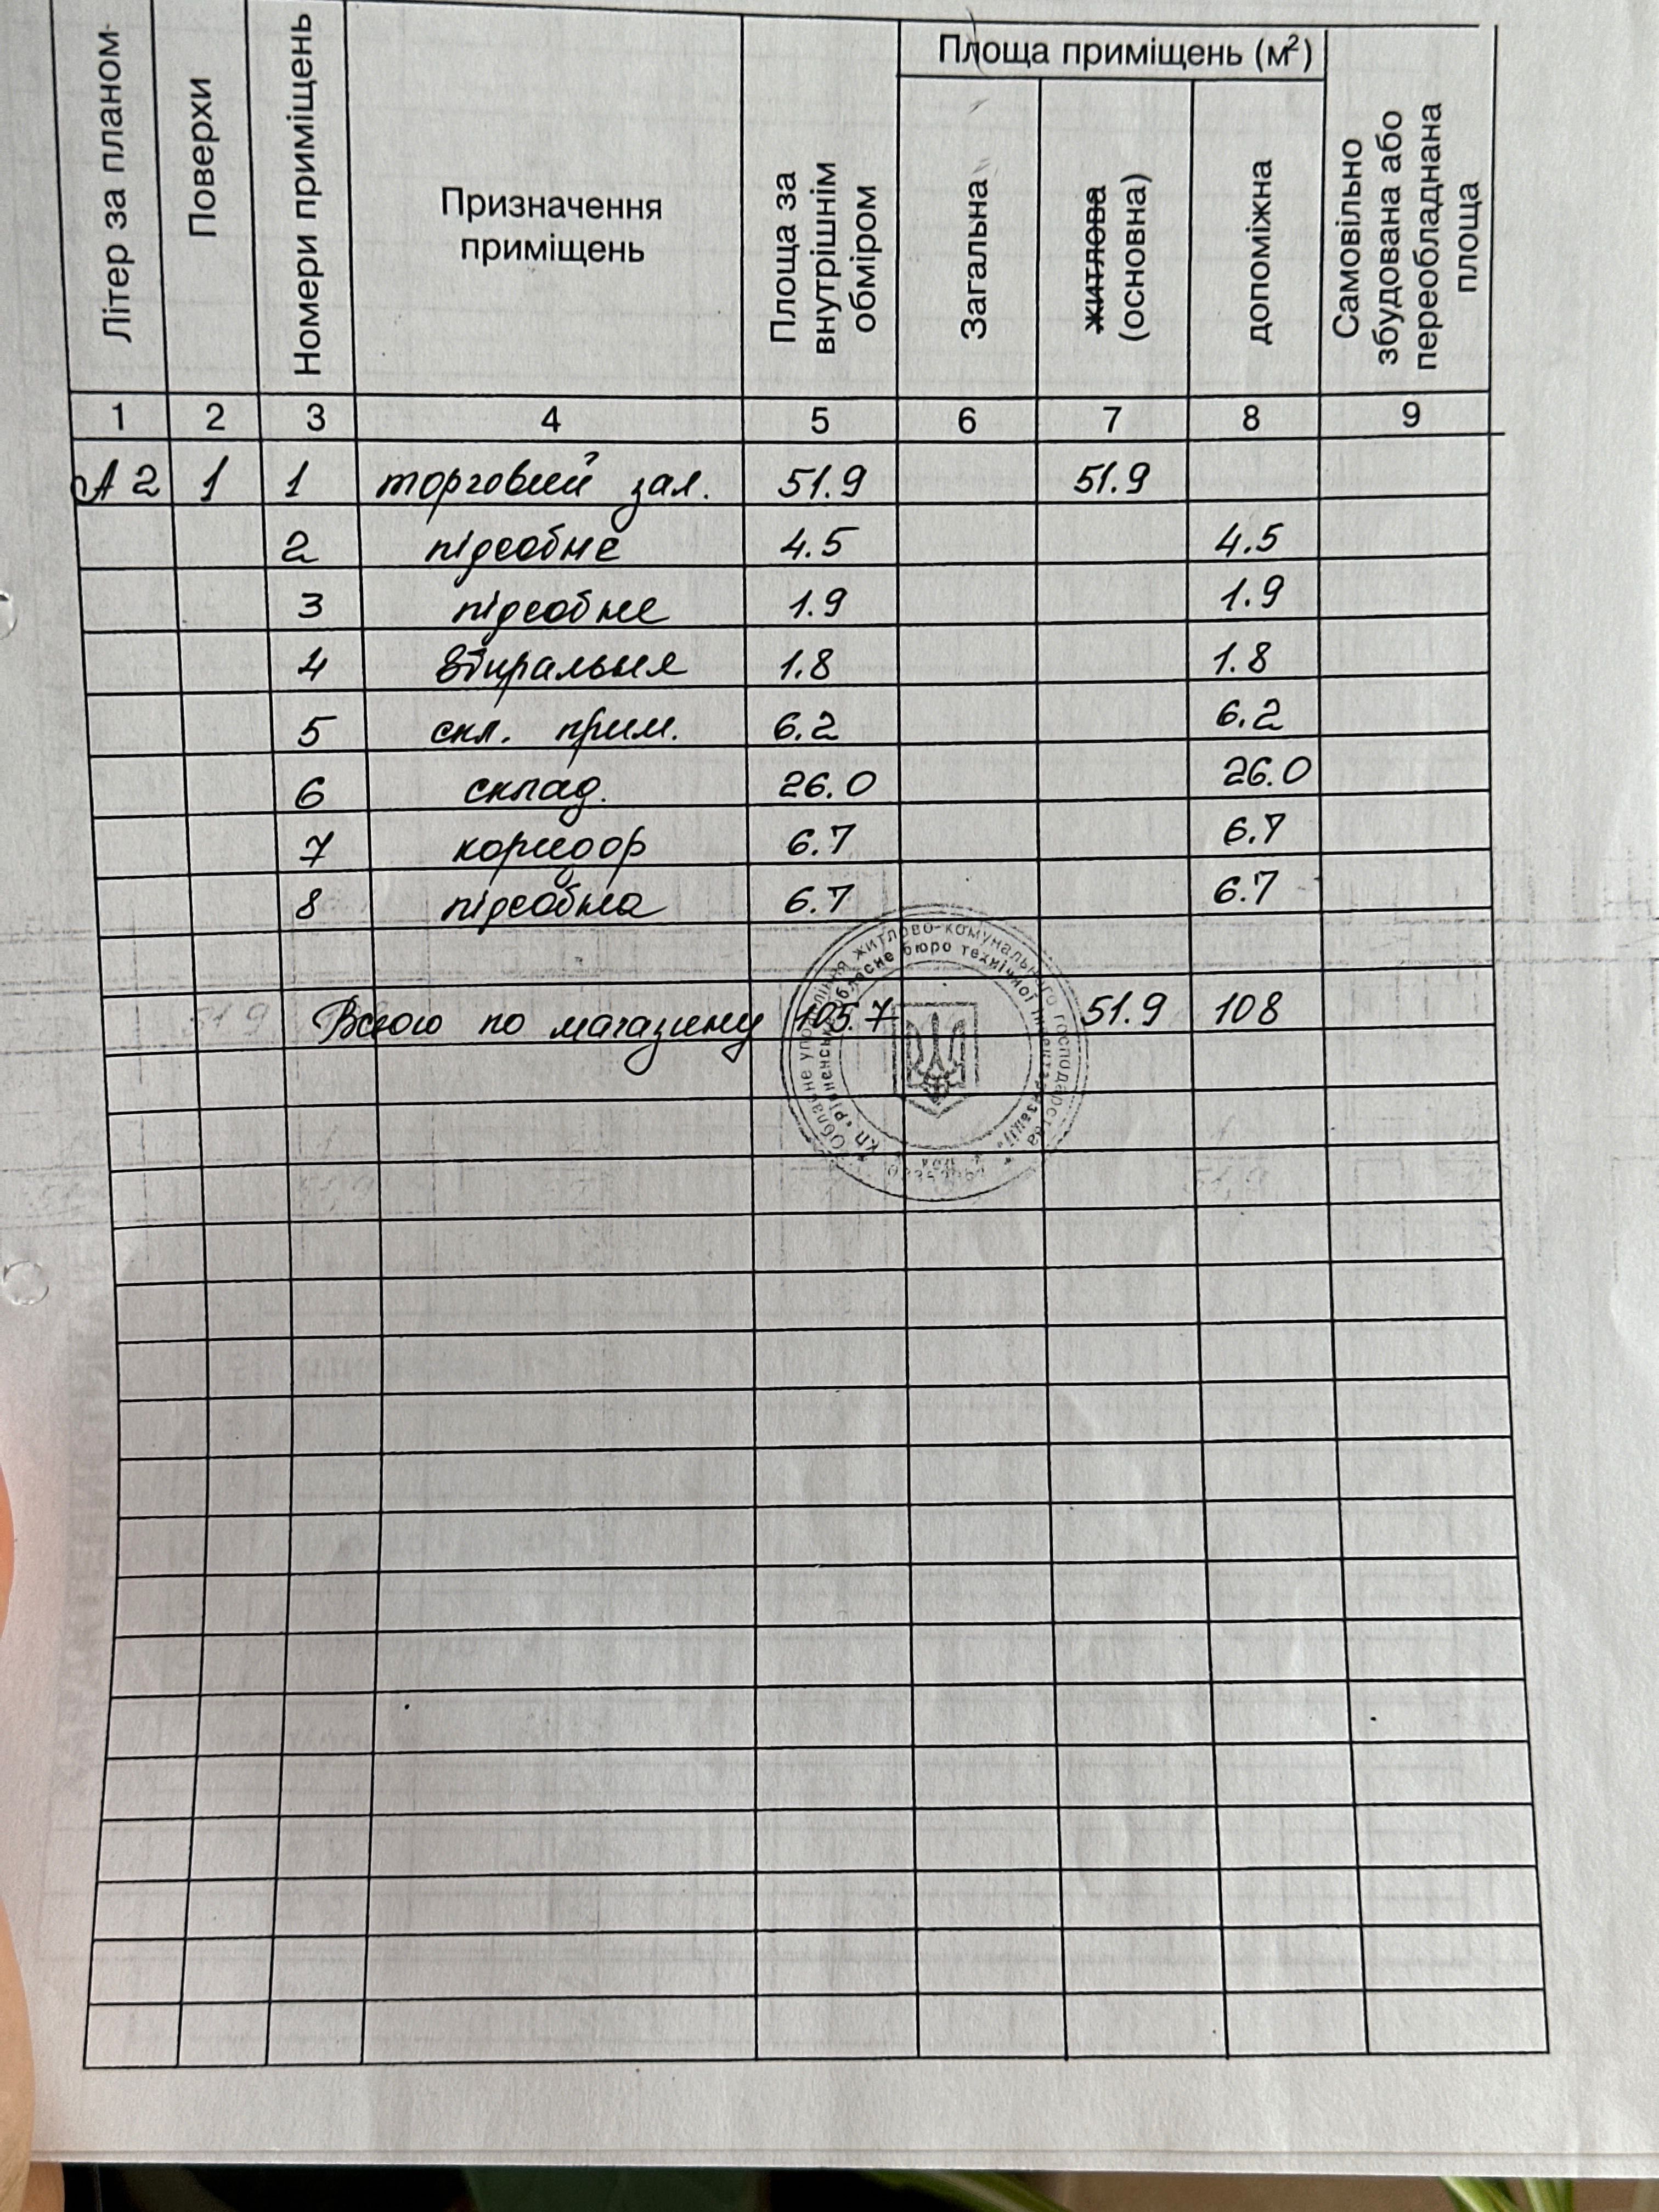 Літер за планом
Поверхи
Номери приміщень
Призначення
приміщень
Площа за
внутрішнім
обміром
Площа приміщень (м²)
Загальна
житлова
(основна)
допоміжна
Самовільно
збудована або
переобладнана
площа
1 2 3 4 5 6 7 8 9
А2 1 1 торговий зал. 51.9 51.9
2 підсобне 4.5 4.5
3 підсобне 1.9 1.9
4 вбиральня 1.8 1.8
5 скл. прим. 6.2 6.2
6 склад. 26.0 26.0
7 коридор 6.7 6.7
8 підсобна 6.7 6.7
Всього по магазину 105.7 51.9 108
Обласне управління житлово-комунального господарства
КП «Рівненське обласне бюро технічної інвентаризації»